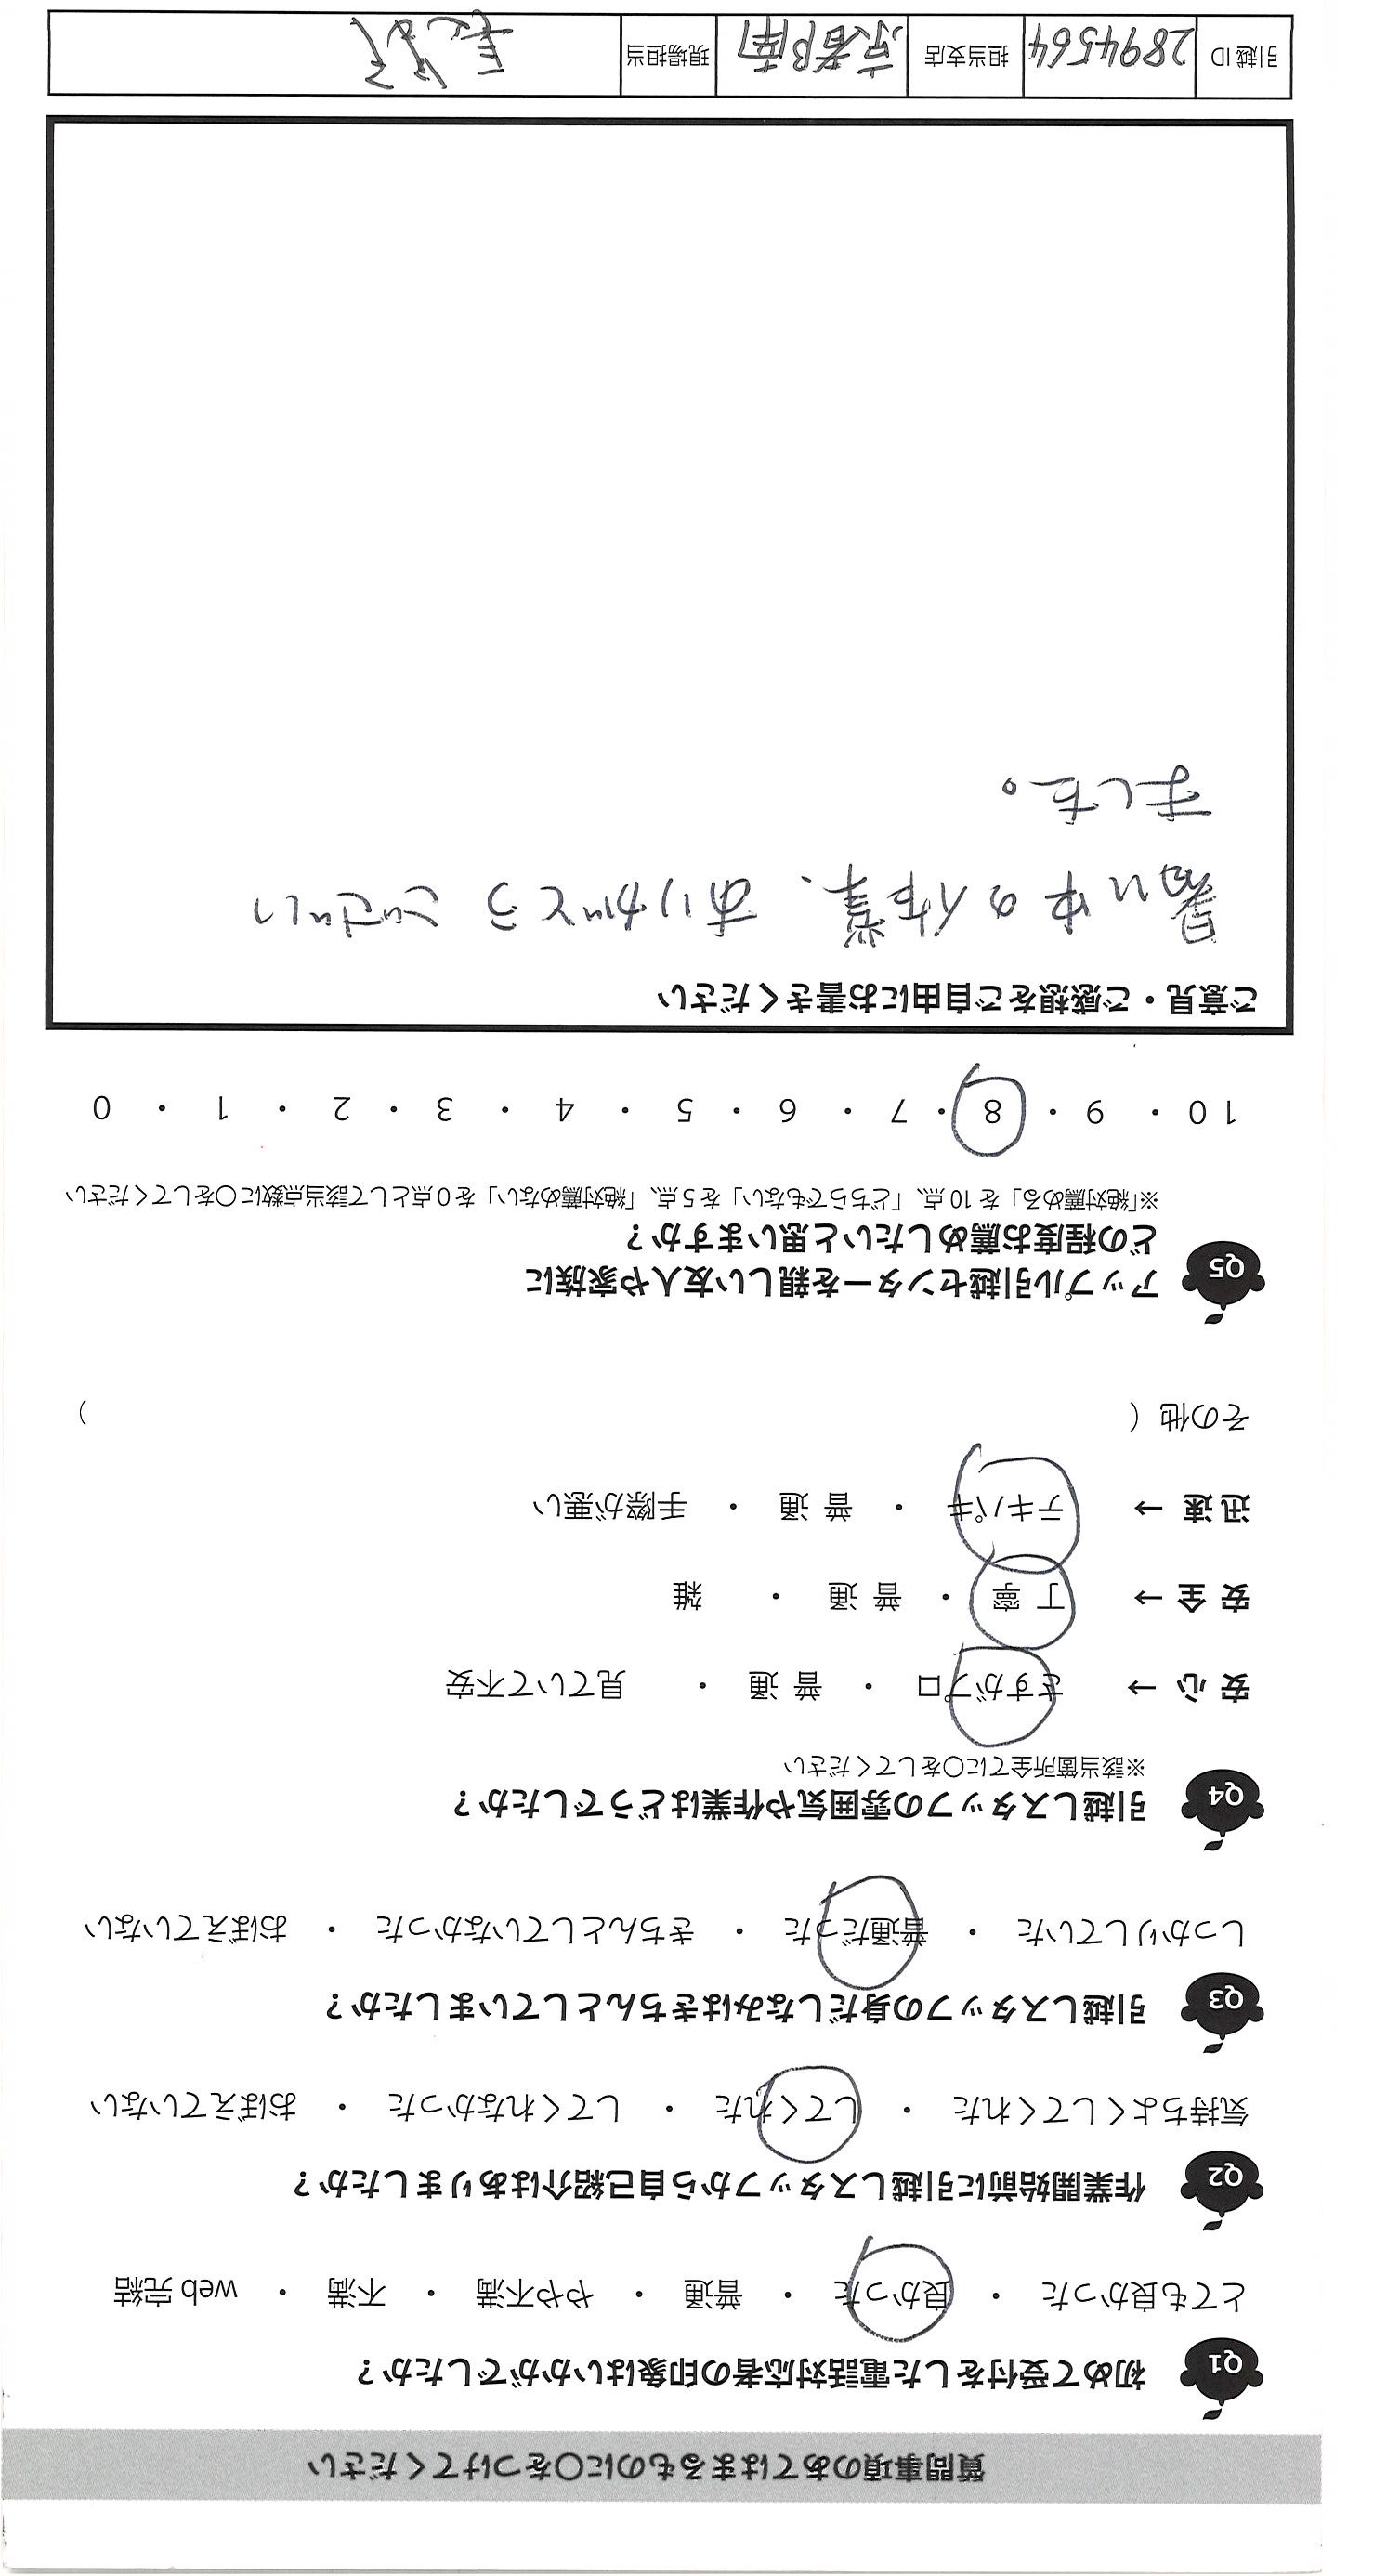 質問事項のあてはまるものに○をつけてください
Q1 初めて受付をした電話対応者の印象はいかがでしたか？
とても良かった ・ 良かった ・ 普通 ・ やや不満 ・ 不満 ・ web 完結
Q2 作業開始前に引越しスタッフから自己紹介はありましたか？
気持ちよくしてくれた ・ してくれた ・ してくれなかった ・ おぼえていない
Q3 引越しスタッフの身だしなみはきちんとしていましたか？
しっかりしていた ・ 普通だった ・ きちんとしていなかった ・ おぼえていない
Q4 引越しスタッフの雰囲気や作業はどうでしたか？
※該当箇所全てに○をしてください
安心 → さすがプロ ・ 普通 ・ 見ていて不安
安全 → 丁寧 ・ 普通 ・ 雑
迅速 → テキパキ ・ 普通 ・ 手際が悪い
その他（ ）
Q5 アップル引越センターを親しい友人や家族に
どの程度お薦めしたいと思いますか？
※「絶対薦める」を10点、「どちらでもない」を5点、「絶対薦めない」を0点として該当点数に○をしてください
10 ・ 9 ・ 8 ・ 7 ・ 6 ・ 5 ・ 4 ・ 3 ・ 2 ・ 1 ・ 0
ご意見・ご感想をご自由にお書きください
暑い中の作業、ありがとうござい
ました。
引越ID 2894564 担当支店 京都南 現場担当